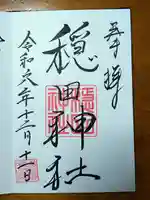 奉拝
穏田神社
令和六年十二月十一日